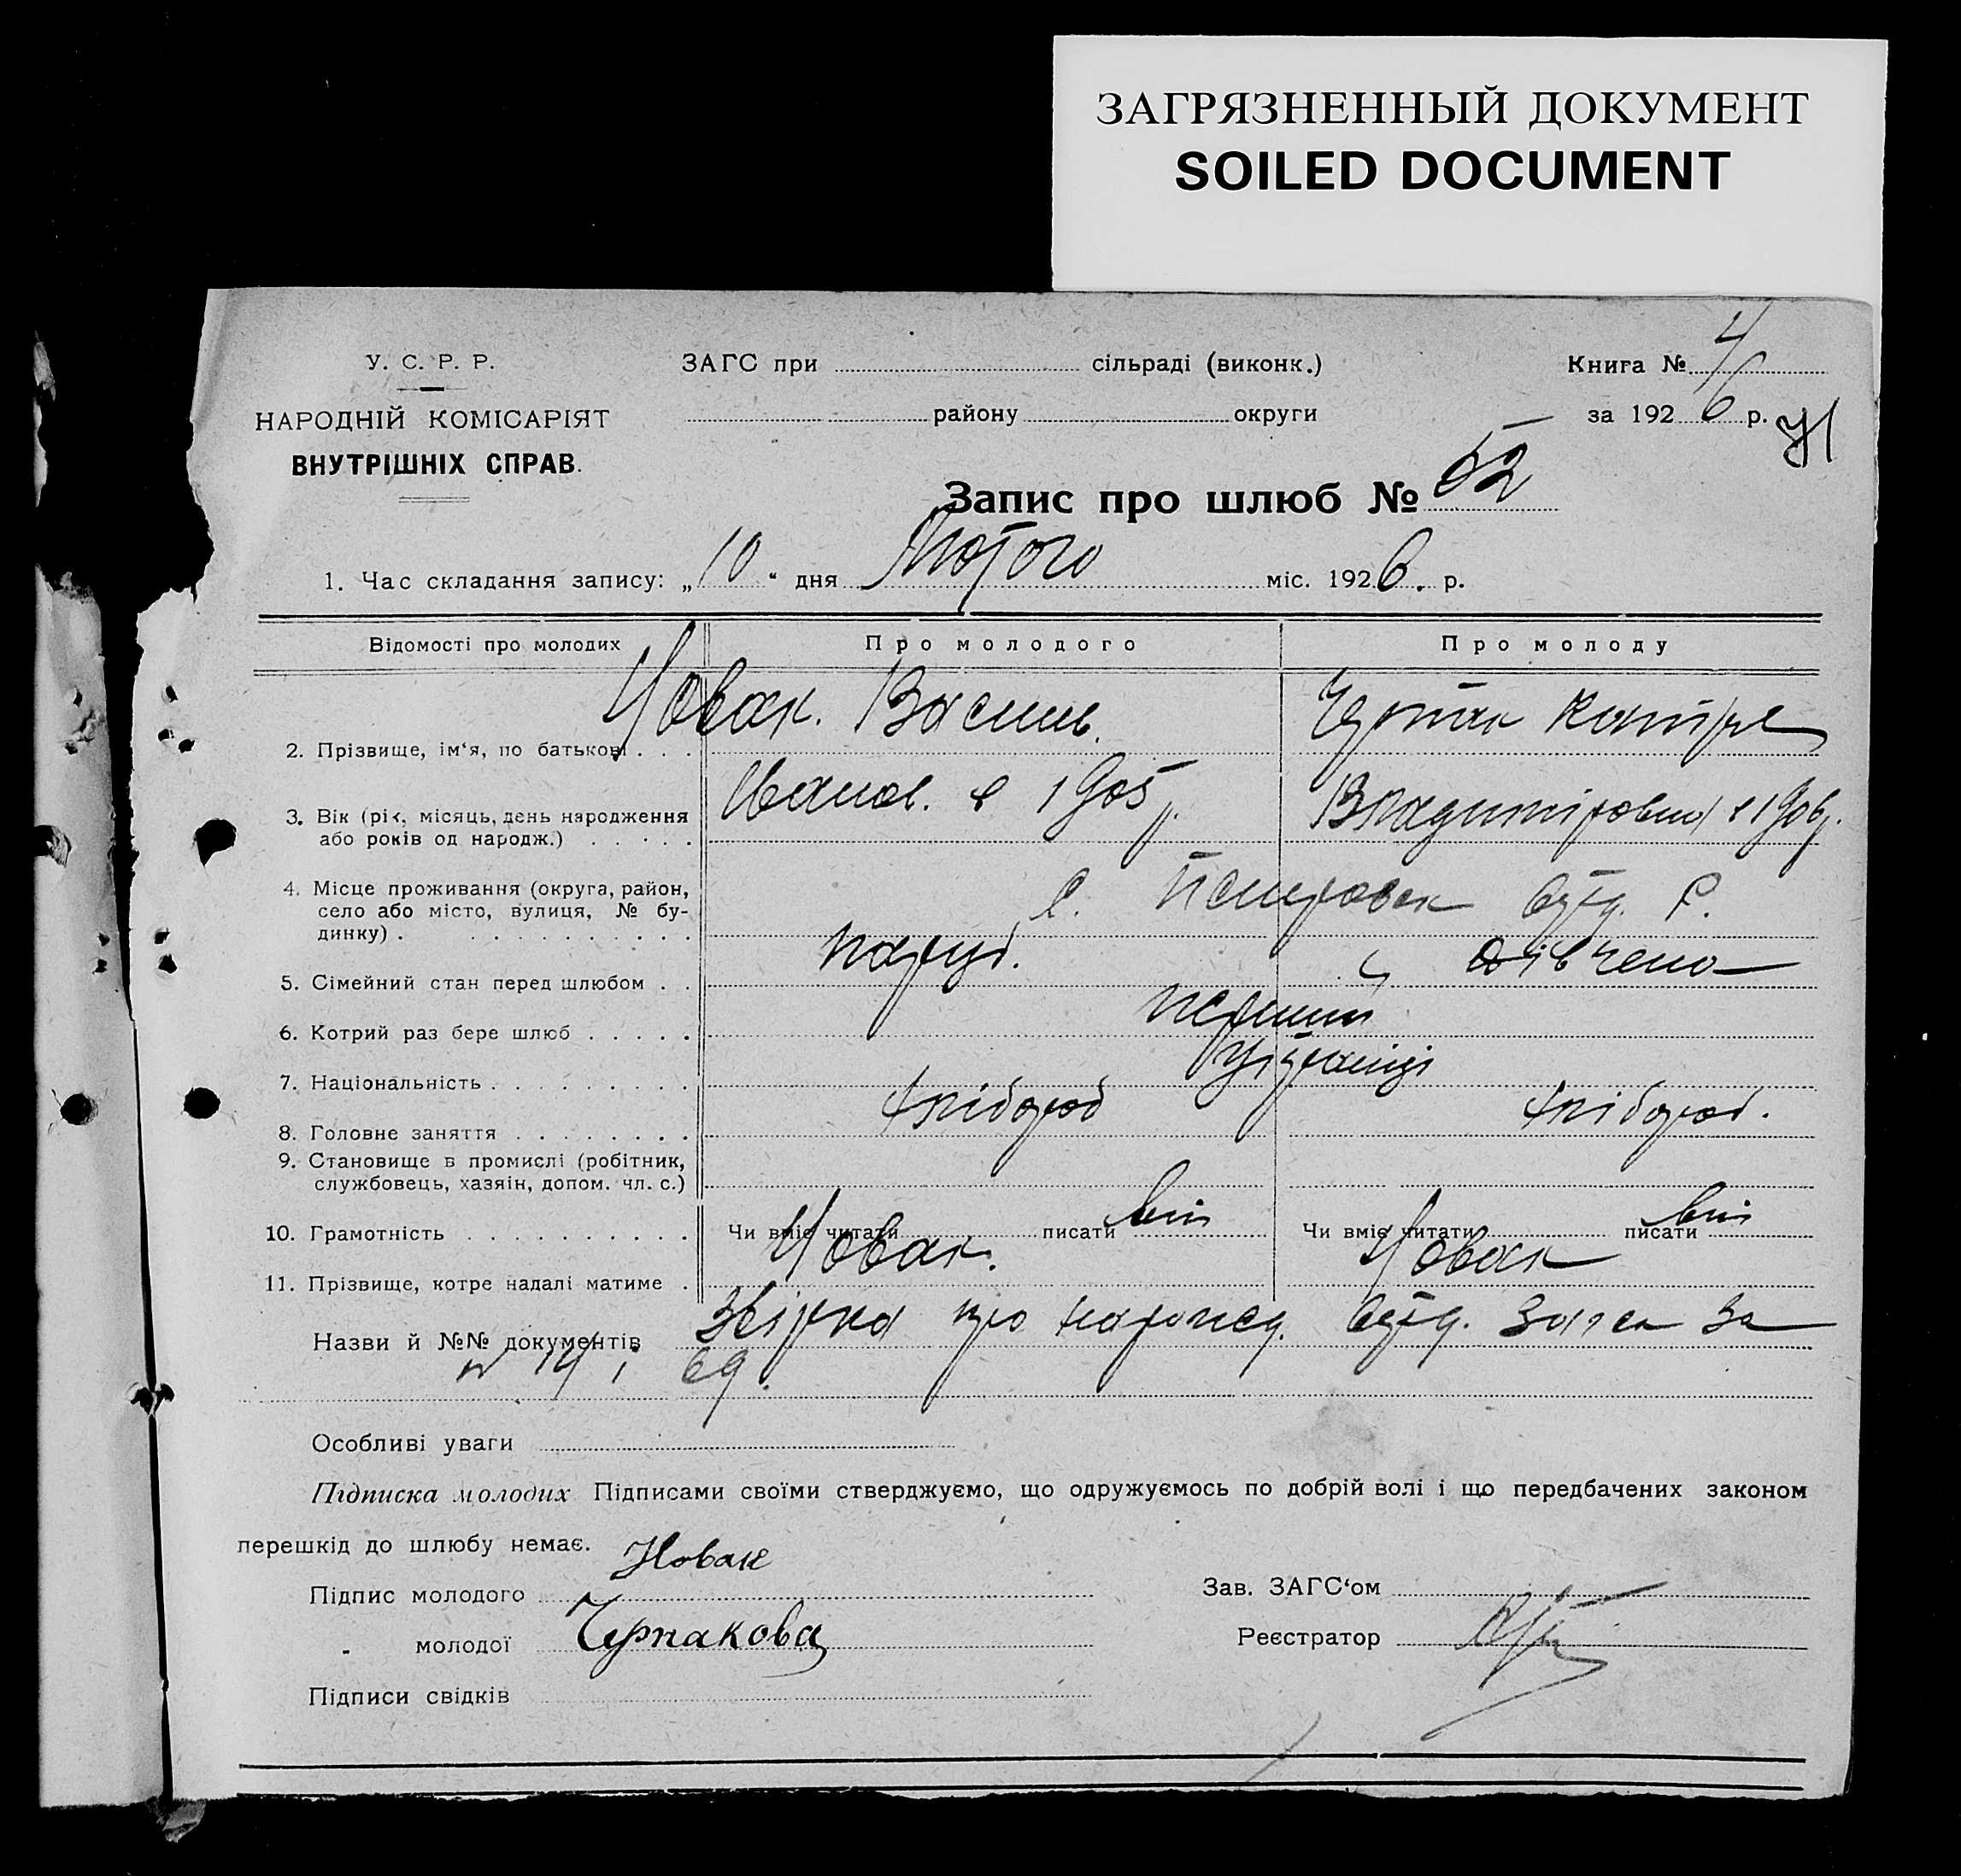 ЗАГРЯЗНЕННЫЙ ДОКУМЕНТ
SOILED DOCUMENT
У. С. Р. Р.
НАРОДНІЙ КОМІСАРІЯТ
ВНУТРІШНІХ СПРАВ.
ЗАГС при сільраді (виконк.)
району округи
Книга № 4/6
за 1926 р.
71
Запис про шлюб № 52
1. Час складання запису: „10“ дня Лютого міс. 1926. р.
Відомості про молодих Про молодого Про молоду
2. Прізвище, ім‘я, по батькові . . . Новак. Василь. Катря
3. Вік (рік, місяць, день народження Іванов. 1905 р. Владимировна 1906 р.
або років од народж.) . . . . .
4. Місце проживання (округа, район,
село або місто, вулиця, № бу-
динку) . . . . . . . . . . с.
5. Сімейний стан перед шлюбом . . паруб. дівчено
6. Котрий раз бере шлюб . . . . . перший
7. Національність . . . . . . . . . Українці
8. Головне заняття . . . . . . . . хлібороб хлібороб.
9. Становище в промислі (робітник,
службовець, хазяін, допом. чл. с.)
10. Грамотність . . . . . . . . . . Чи вміє читати писати вміє Чи вміє читати писати вміє
11. Прізвище, котре надалі матиме . Новак. Новак
Назви й №№ документів про народж. Загса за
№ 14 і 69.
Особливі уваги
Підписка молодих Підписами своїми стверджуємо, що одружуємось по добрій волі і що передбачених законом
перешкід до шлюбу немає.
Підпис молодого Новак
„ молодої Чупакова
Підписи свідків
Зав. ЗАГС‘ом
Реєстратор